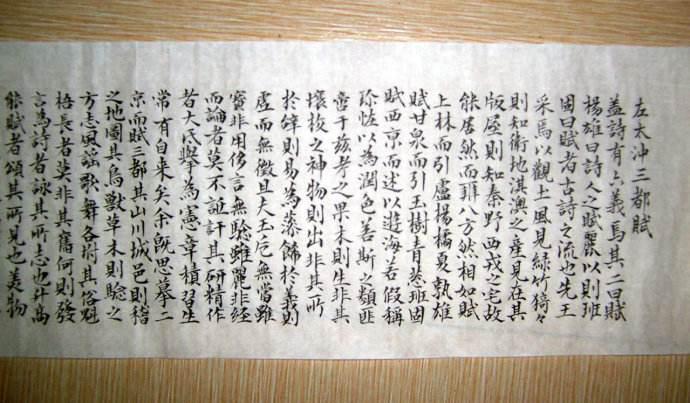 左太沖三都賦
蓋詩有六義焉其二曰賦
楊雄曰詩人之賦麗以則班
固曰賦者古詩之流也先王
采焉以觀土風見綠竹猗々
則知衛地淇澳之產見在其
版屋則知秦野西戎之宅故
能居然而辨八方然相如賦
上林而引盧楊橘夏孰雄
賦甘泉而引玉樹青蔥班固
賦西京而述以遊海若假稱
珍怪以為潤色若斯之類匪
啻于茲考之果木則生非其
壤挍之神物則出非其所
於辭則易為藻飾於義則
虛而無徵且大玉卮無當雖
寶非用侈言無驗雖麗非經
而論者莫不詆訐其研精作
者大氐舉為憲章積習生
常有自来矣余既思摹二
京而賦三都其山川城邑則稽
之地圖其鳥獸草木則驗之
方志風謠歌舞各附其俗魁
梧長者莫非其舊何則發
言為詩者詠其所志也升高
能賦者頌其所見也美物